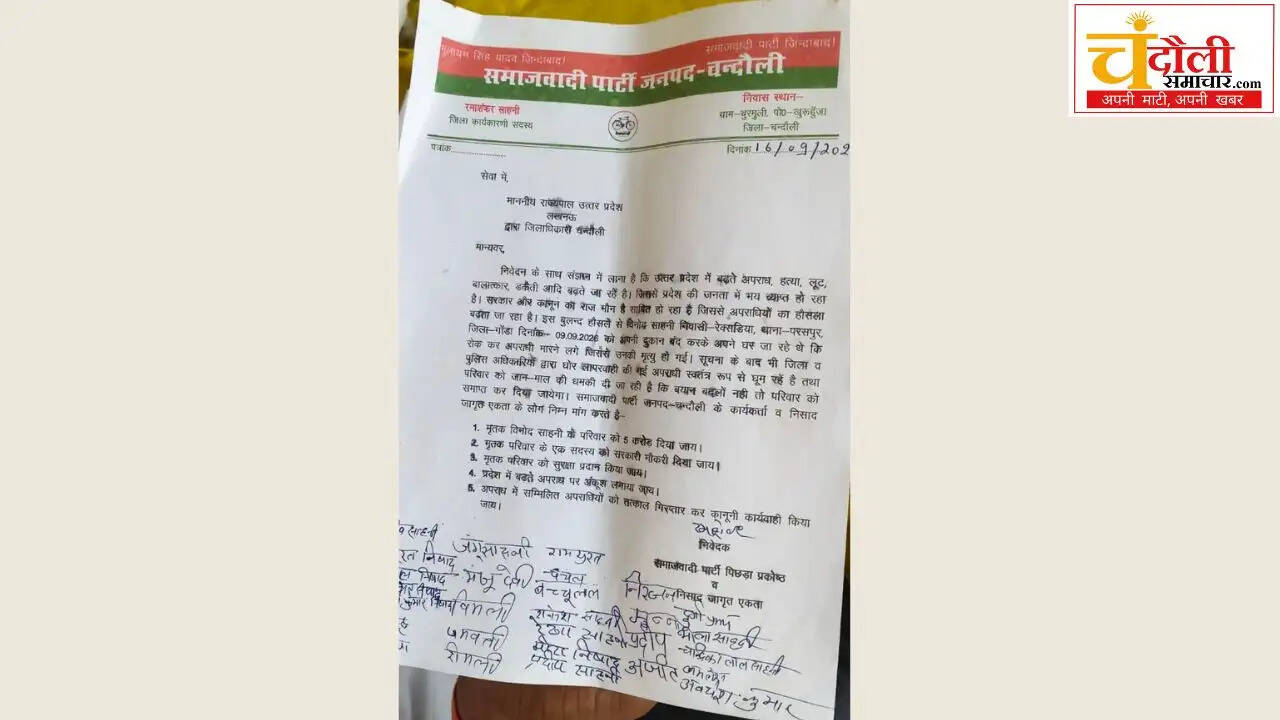 मुलायम सिंह यादव जिन्दाबाद!
समाजवादी पार्टी जिन्दाबाद!
समाजवादी पार्टी जनपद-चन्दौली
रमाशंकर साहनी
जिला कार्यकारणी सदस्य
निवास स्थान–
ग्राम-धुरमुली, पो0-खुरहुँजा
जिला-चन्दौली
पत्रांक
दिनांक 16/09/202
सेवा में,
माननीय राज्यपाल उत्तर प्रदेश
लखनऊ
द्वारा जिलाधिकारी चन्दौली
मान्यवर,
निवेदन के साथ संज्ञान में लाना है कि उत्तर प्रदेश में बढ़ते अपराध, हत्या, लूट,
बालात्कार, डकैती आदि बढ़ते जा रहें है। जिससे प्रदेश की जनता में भय व्याप्त हो रहा
है। सरकार और कानून का राज मौन है साबित हो रहा है जिससे अपराधियों का हौसला
बढ़ता जा रहा है। इस बुलन्द हौसले से विनोद साहनी निवासी-रेक्सडिया, थाना-परसपुर,
जिला-गोंडा दिनांक- 09.09.2026 को अपनी दुकान बंद करके अपने घर जा रहे थे कि
रोक कर अपराधी मारने लगे जिससे उनकी मृत्यु हो गई। सूचना के बाद भी जिला व
पुलिस अधिकारियों द्वारा घोर लापरवाही की गई अपराधी स्वतंत्र रूप से घूम रहें है तथा
परिवार को जान-माल की धमकी दी जा रही है कि बयान बदलों नही तो परिवार को
समाप्त कर दिया जायेगा। समाजवादी पार्टी जनपद-चन्दौली के कार्यकर्ता व निसाद
जागृत एकता के लोग निम्न मांग करते है-
1. मृतक विनोद साहनी के परिवार को 5 करोड दिया जाय।
2. मृतक परिवार के एक सदस्य को सरकारी नौकरी दिया जाय।
3. मृतक परिवार को सुरक्षा प्रदान किया जाय।
4. प्रदेश में बढते अपराध पर अंकुश लगाया जाय।
5. अपराध में सम्मिलित अपराधियों को तत्काल गिरफ्तार कर कानूनी कार्यवाही किया
जाय।
निवेदक
समाजवादी पार्टी पिछड़ा प्रकोष्ठ
व
निसाद जागृत एकता
साहनी जंगू साहनी रामसुरत
निषाद मंजू देवी बच्चूलाल निरंजन
विमली राकेश साहनी मुन्ना
रेखा साहनी प्रदीप भोला साहनी
चन्द्रिका लाल साहनी
जमवती
रीमली
निषाद अजीत
प्रदीप साहनी
अवधेश कुमार
चंदौली
समाचार.com
अपनी माटी, अपनी खबर